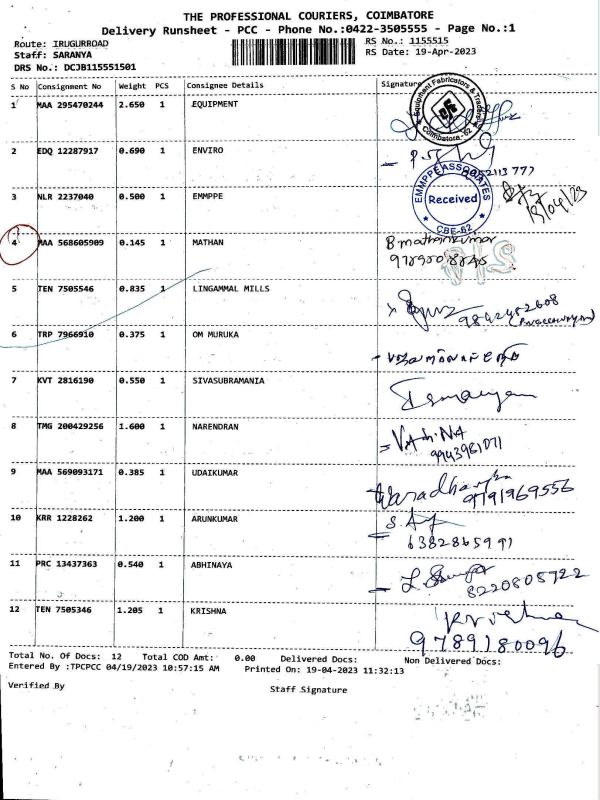 THE PROFESSIONAL COURIERS, COIMBATORE
Delivery Runsheet - PCC - Phone No.:0422-3505555 - Page No.:1
Route: IRUGURROAD
Staff: SARANYA
DRS No.: DCJB115551501
RS No.: 1155515
RS Date: 19-Apr-2023
S No Consignment No Weight PCS Consignee Details Signature
1 MAA 295470244 2.650 1 EQUIPMENT
Equipment Fabricators & Traders
Coimbatore-62
2 EDQ 12287917 0.690 1 ENVIRO
3 NLR 2237040 0.500 1 EMMPPE
EMMPPE ASSOCIATES
Received
CBE-62
4 MAA 568605909 0.145 1 MATHAN
B mathankumar
5 TEN 7505546 0.835 1 LINGAMMAL MILLS
9842482608
6 TRP 7966910 0.375 1 OM MURUKA
7 KVT 2816190 0.550 1 SIVASUBRAMANIA
8 TMG 200429256 1.600 1 NARENDRAN
9943981071
9 MAA 569093171 0.385 1 UDAIKUMAR
9791969556
10 KRR 1228262 1.200 1 ARUNKUMAR
6382865991
11 PRC 13437363 0.540 1 ABHINAYA
8220805722
12 TEN 7505346 1.205 1 KRISHNA
9789180096
Total No. Of Docs: 12 Total COD Amt: 0.00 Delivered Docs: Non Delivered Docs:
Entered By :TPCPCC 04/19/2023 10:57:15 AM Printed On: 19-04-2023 11:32:13
Verified By Staff Signature